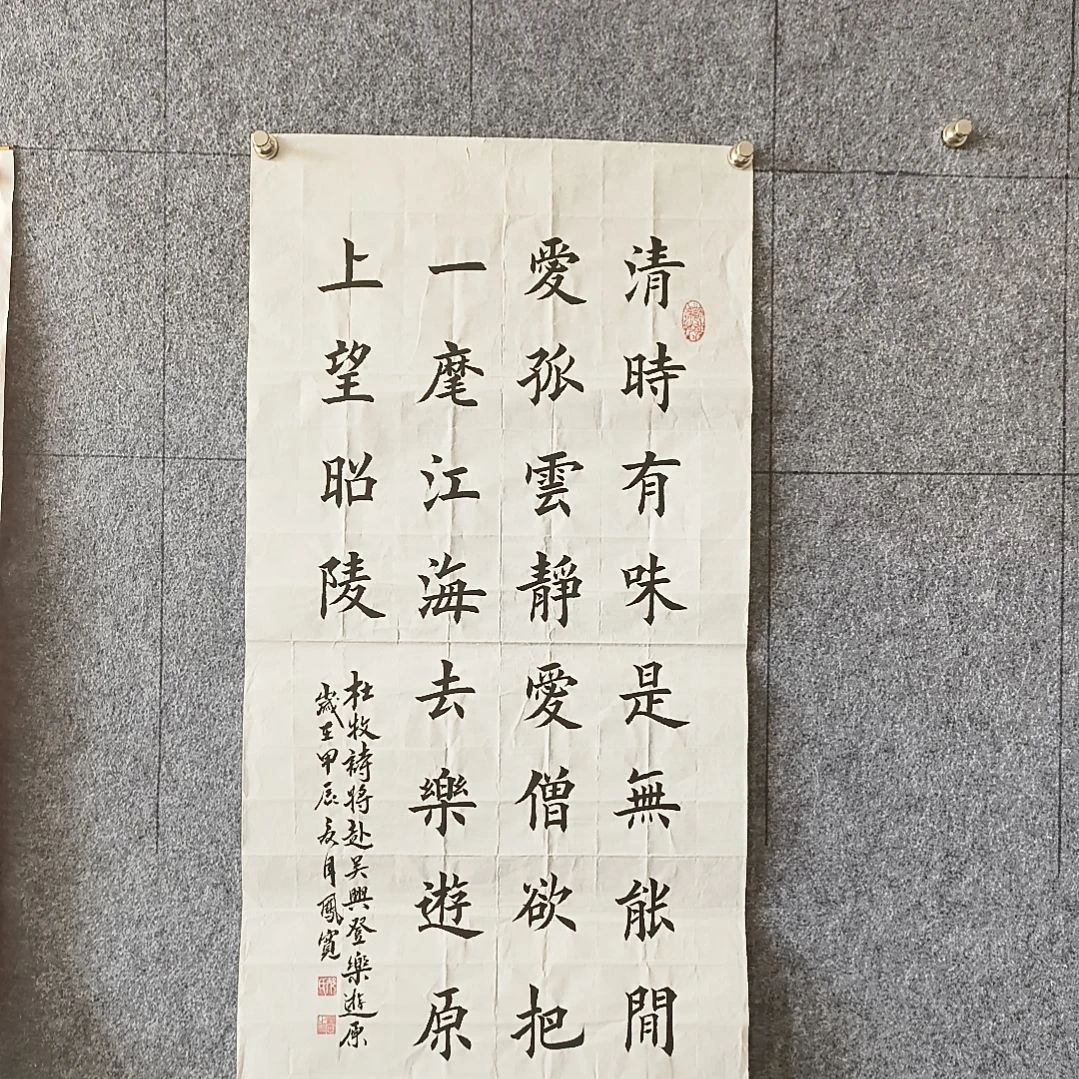 清時有味是無能閒
愛孤雲靜愛僧欲把
一麾江海去樂遊原
上望昭陵
杜牧詩將赴吳興登樂遊原
歲在甲辰夏月鳳賓